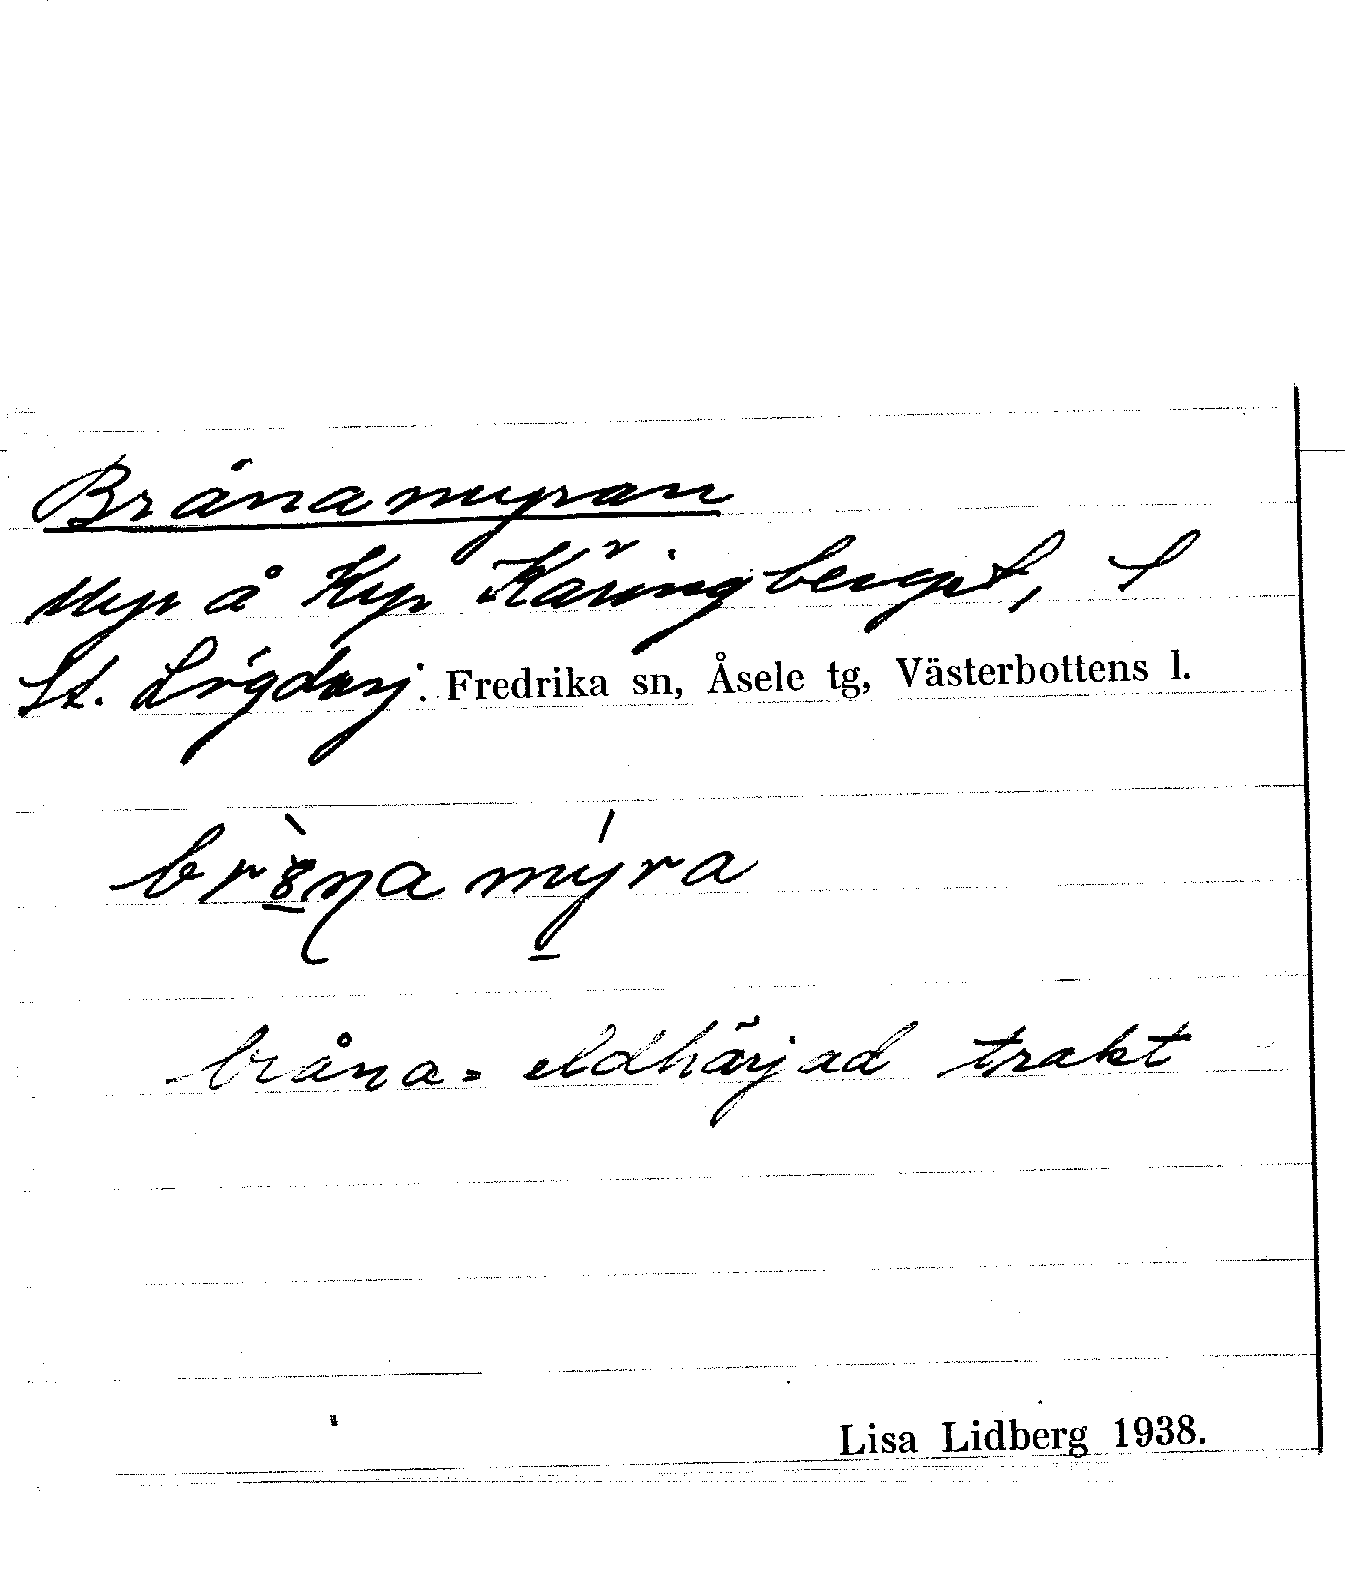 Brånamyran
Myr å Hyp Käringberget, S
St. Lögdasj. Fredrika sn, Åsele tg, Västerbottens l.
mýra
bråna = eldhärjad trakt
Lisa Lidberg 1938.